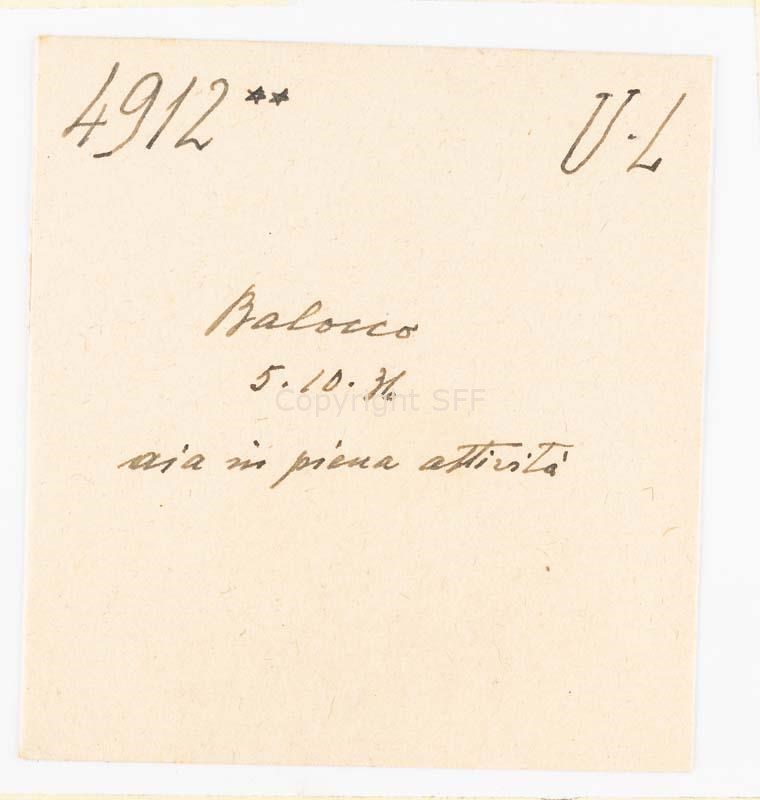 4912** U.L
Balocco
5.10.31
Copyright SFF
aia in piena attività